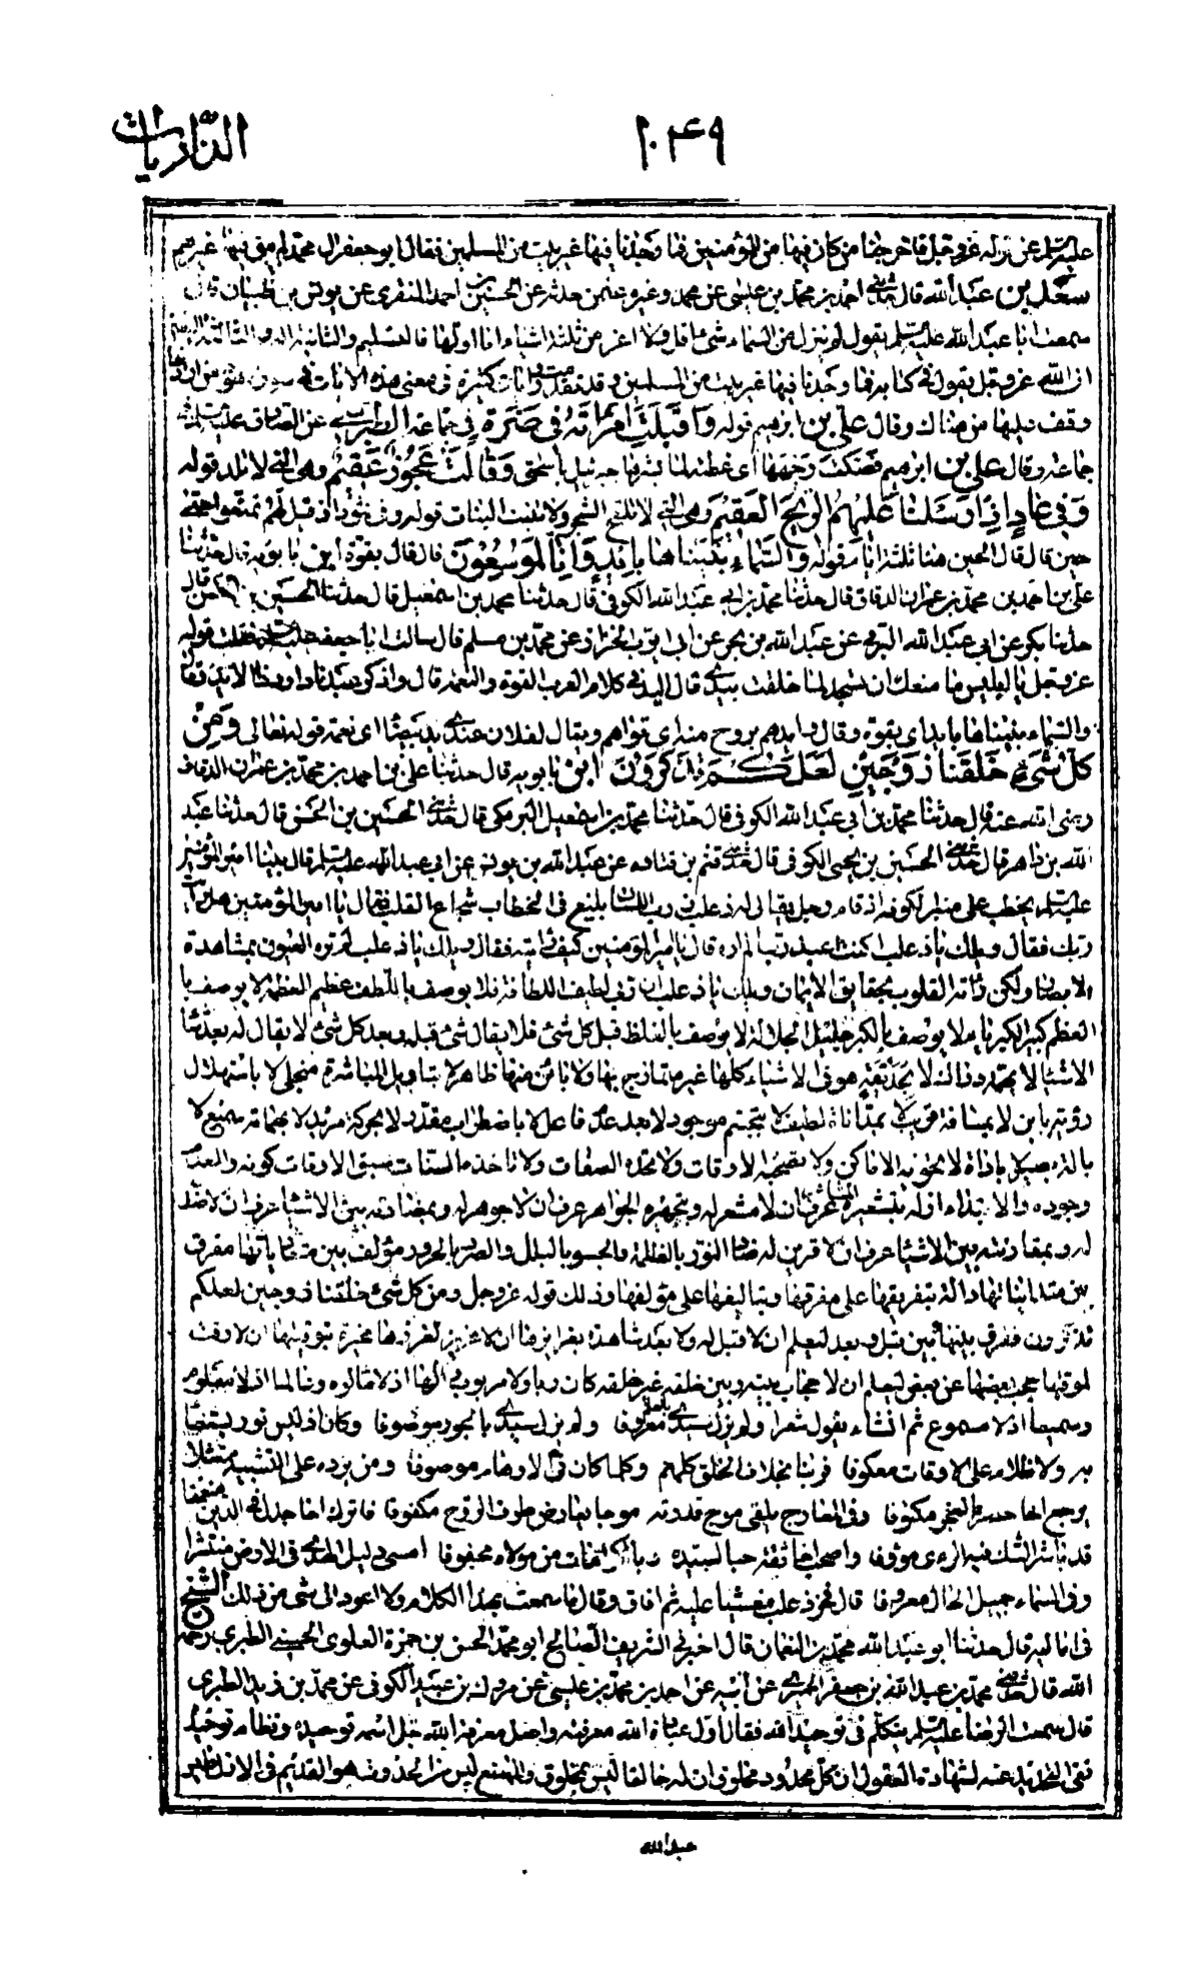 الذاريات
١٠٤٩
عليه السلم عن قوله عز وجل فاخرجنا من كان فيها من المؤمنين فما وجدنا فيها غير بيت من المسلمين فقال ابو جعفر ال محمد لم يبق فيها غيرهم
سعد بن عبد الله قال حدثني احمد بن محمد بن عيسى عن محمد وغيره عمن حدثه عن الحسين بن احمد المنقرى عن يونس بن ظبيان قال
سمعت ابا عبد الله عليه السلم يقول لم ينزل من السماء شئ اقل ولا اعز من ثلثة اشياء اما اولها فالتسليم والثانية البر والثالثة اليقين
ان الله عز وجل يقول في كتابه فما وجدنا فيها غير بيت من المسلمين وقد تقدمت روايات كثيرة فى معنى هذه الايات في سورة هود من اراد
وقف عليها من هناك وقال علي بن ابرهيم قوله واقبلت امراته فى صرة في جماعة الطبرسي عن الصادق عليه السلم فى
جماعة وقال على بن ابرهيم فصكت وجهها اى غطته لما بشرها جبرئيل باسحق وقالت عجوز عقيم وهى التي لا تلد قوله
وفي عاد اذ ارسلنا عليهم الريح العقيم وهى التي لا تلقح الشجر ولا تنبت النبات قوله وفى ثمود اذ قيل لهم تمتعوا حتى
حين قال قال الحين هنا ثلثة ايام قوله والسماء بنيناها بايد وانا لموسعون قال قال بقوة ابن بابويه قال حدثنا
على بن احمد بن محمد بن عمران الدقاق قال حدثنا محمد بن ابي عبد الله الكوفى قال حدثنا محمد بن اسمعيل قال حدثنا الحسين بن الحسن قال
حدثنا بكر عن ابي عبد الله البرقي عن عبد الله بن بحر عن ابى ايوب الخزاز عن محمد بن مسلم قال سالت ابا جعفر عليه السلم فقلت قوله
عز وجل يا ابليس ما منعك ان تسجد لما خلقت بيدي قال اليد في كلام العرب القوة والنعمة قال واذكر عبدنا داود ذا الايد وقال
والسماء بنيناها بايد اى بقوة وقال وايدهم بروح منه اى قواهم ويقال لفلان عندي يد بيضاء اى نعمة قوله تعالى ومن
كل شئ خلقنا زوجين لعلكم تذكرون ابن بابويه قال حدثنا على بن احمد بن محمد بن عمران الدقاق
رضى الله عنه قال حدثنا محمد بن أبي عبد الله الكوفى قال حدثنا محمد بن اسمعيل البرمكى قال حدثني الحسين بن الحسن قال حدثنا عبد
الله بن داهر قال حدثني الحسين بن يحيى الكوفى قال حدثني قثم بن قتادة عن عبد الله بن يونس عن ابي عبد الله عليه السلم قال بينا امير المؤمنين
عليه السلم يخطب على منبر الكوفة اذ قام رجل يقال له ذعلب ذرب اللسان بليغ فى الخطاب شجاع القلب فقال يا امير المؤمنين هل رايت
ربك فقال ويلك يا ذعلب ما كنت اعبد ربا لم اره قال يا امير المؤمنين كيف رايته فقال ويلك يا ذعلب لم تره العيون بمشاهدة
الابصار ولكن راته القلوب بحقايق الايمان ويلك يا ذعلب ان ربي لطيف اللطافة فلا يوصف باللطف عظيم العظمة لا يوصف با
العظم كبير الكبرياء لا يوصف بالكبر جليل الجلالة لا يوصف بالغلظ قبل كل شئ فلا يقال شئ قبله وبعد كل شئ لا يقال له بعد شاء
الاشياء لا بهمة دراك لا بخديعة هو فى الاشياء كلها غير متمازج بها ولا بائن منها ظاهر لا بتاويل المباشرة متجلى لا باستهلال
رؤية باين لا بمسافة قريب لا بمداناة لطيف لا بتجسم موجود لا بعد عدم فاعل لا باضطرار مقدر لا بحركة مريد لا بهمامة سميع لا
بالة بصير لا باداة لا تحويه الاماكن ولا تصحبه الاوقات ولا تحده الصفات ولا تاخذه السنات سبق الاوقات كونه والعدم
وجوده والابتداء ازله بتشعيره المشاعر عرف ان لا مشعر له وبتجهيره الجواهر عرف ان لا جوهر له وبمضادته بين الاشياء عرف ان لا ضد
له وبمقارنته بين الاشياء عرف ان لا قرين له ضاد النور بالظلمة والجسو بالبلل والصرد بالحرور مؤلف بين متعادياتها مفرق
بين متدانياتها دالة بتفريقها على مفرقها وبتاليفها على مؤلفها وذلك قوله عز وجل ومن كل شئ خلقنا زوجين لعلكم
تذكرون ففرق بينهما بين قبل وبعد ليعلم ان لا قبل له ولا بعد شاهدة بغرايزها ان لا غريزة لمغرزها مخبرة بتوقيتها ان لا وقت
لموقتها حجب بعضها عن بعض ليعلم ان لا حجاب بينه وبين خلقه غير خلقه كان ربا ولا مربوب والها اذ لا مالوه وعالما اذ لا معلوم
وسميعا اذ لا مسموع ثم انشاء يقول شعرا ولم يزل سيدي بالحمد معروفا ولم يزل سيدي بالجود موصوفا وكان اذ ليس نور يستضا
به ولا ظلام على الاوقات معكوفا فربنا بخلاف الخلق كلهم وكلما كان فى الاوهام موصوفا ومن يرده على التشبيه ممتثلا
يرجع اخا حصر بالعجز مكتوفا وفى المعارج يلقى موج قدرته موجا يعارض طرف الروح مكفوفا فاترك اخا جدل في الدين منعمقا
قد باشر الشك فيه الراى مؤوفا واصحب اخا ثقة حبا لسيده وبالكرامات من مولاه محفوفا امسى دليل الهدى فى الارض منتشرا
وفى السماء جميل الحال معروفا قال فخر ذعلب مغشيا عليه ثم افاق وقال ما سمعت بهذا الكلام ولا اعود الى شئ من ذلك الشيخ
فى اماليه قال حدثنا ابو عبد الله محمد بن النعمان قال اخبرني الشريف الصالح ابو محمد الحسن بن حمزة العلوى الحسيني الطبرى رحمه
الله قال حدثني محمد بن عبد الله بن جعفر الحميري عن أبيه عن احمد بن محمد بن عيسى عن مروك بن عبيد الكوفى عن محمد بن زيد الطبرى
قال سمعت الرضا عليه السلم يتكلم فى توحيد الله فقال اول عبادة الله معرفته واصل معرفة الله جل اسمه توحيده ونظام توحيد
نفى التحديد عنه لشهادة العقول ان كل محدود مخلوق ان له خالقا ليس بمخلوق والممتنع ليس من الحدوث هو القديم فى الازل ظهير
عبد الله